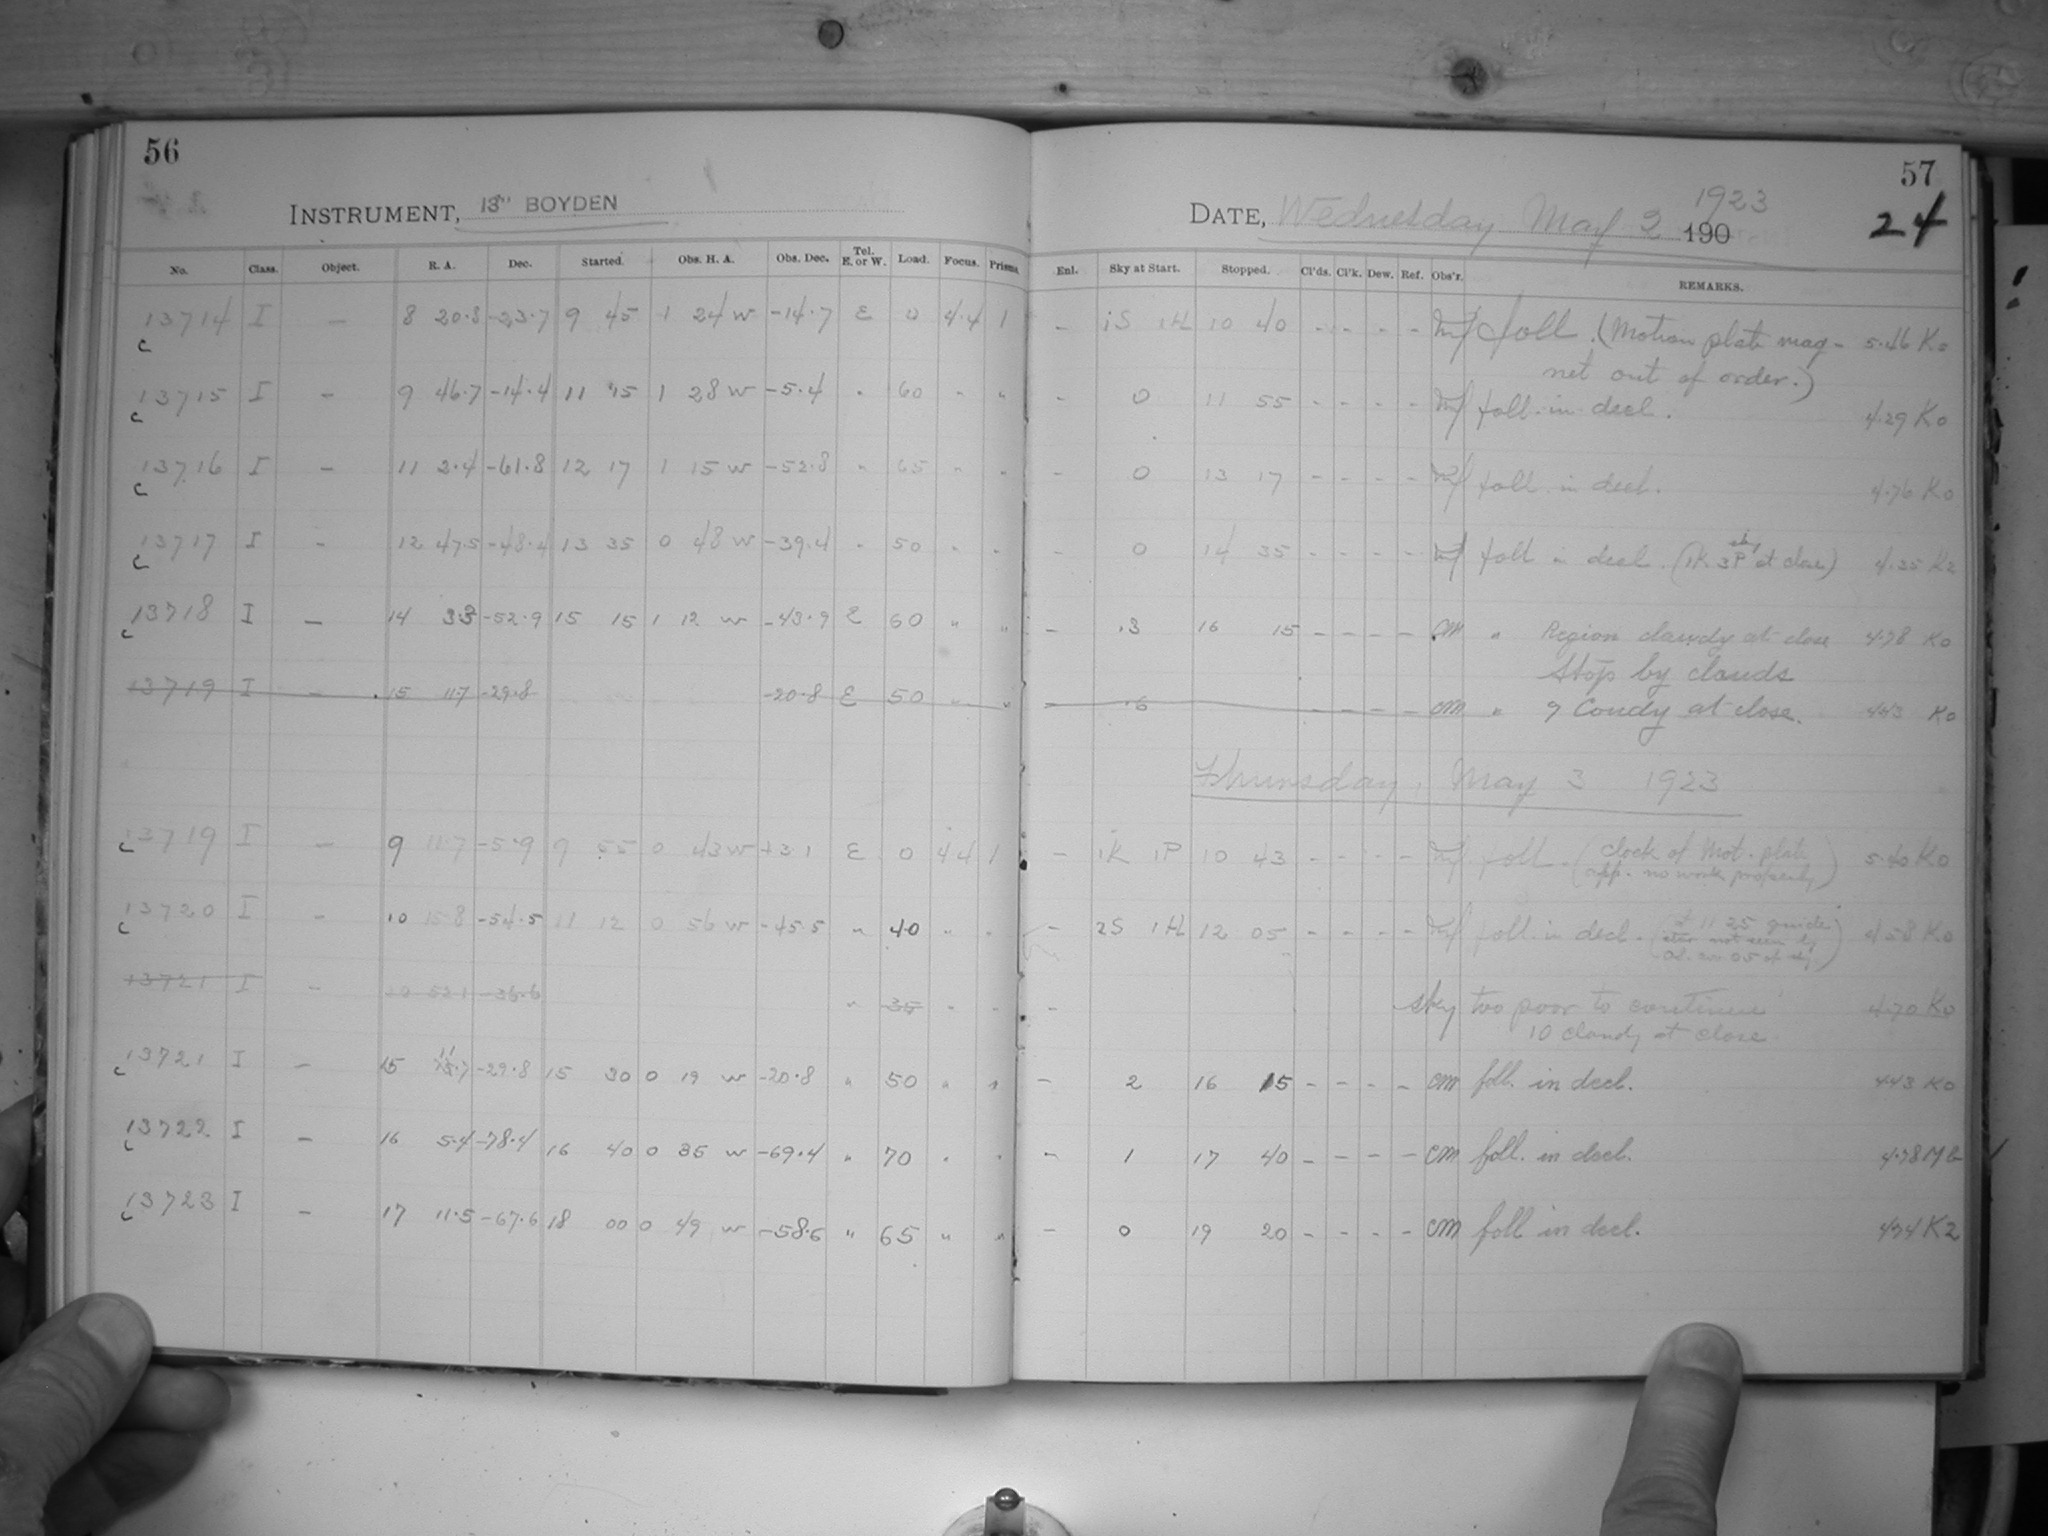 56
INSTRUMENT, 13" BOYDEN
No. Class. Object. R. A. Dec. Started. Obs. H. A. Obs. Dec. Tel. E. or W. Load. Focus. Prisms.
13714 I - 8 20.8 -23.7 9 45 1 24 W -14.7 E 0 4.4 1
c
13715 I - 9 46.7 -14.4 11 15 1 28 W -5.4 " 60 " "
c
13716 I - 11 2.4 -61.8 12 17 1 15 W -52.8 " 65 " "
c
13717 I - 12 47.5 -48.4 13 35 0 48 W -39.4 " 50 " "
c
13718 I - 14 -52.9 15 15 1 12 W -43.9 E 60 " "
c
13719 I - 15 11.7 -29.8 -20.8 E 50 " "
c 13719 I - 9 11.7 -5.9 9 55 0 43 W +3.1 E 0 4.4 1
13720 I - 10 15.8 -54.5 11 12 0 56 W -45.5 " 40 " "
c
13721 I - 10 52.1 -36.6 " 35 - -
11
13721 I - 15 -29.8 15 30 0 19 W -20.8 " 50 " "
c
13722 I - 16 5.4 -78.4 16 40 0 35 W -69.4 " 70 " "
c
13723 I - 17 11.5 -67.6 18 00 0 49 W -58.6 " 65 " "
c
57
1923
DATE, Wednesday May 2 190
24
Enl. Sky at Start. Stopped. Cl'ds. Cl'k. Dew. Ref. Obs'r. REMARKS.
- 1S 1H 10 40 - - - - foll. (Motion plate mag- 5.46 K0
net out of order.)
- 0 11 55 - - - - foll. in decl. 4.29 K0
- 0 13 17 - - - - foll. in decl. 4.76 K0
- 0 14 35 - - - - foll in decl. (1K. 3P sky at close) 4.35 K2
- .3 16 15 - - - - CM " Region cloudy at close 4.78 K0
Stop by clouds
- .6 - - - - CM " 9 Coudy at close. 4.43 K0
Thursday, May 3 1923
- 1K 1P 10 43 - - - - foll. (clock of Mot. plate 5.40 K0
app. no work properly)
- 2S 1H 12 05 - - - - foll. in decl. (at 11 25 guide 4.58 K0
star not seen
- sky too poor to continue 4.70 K0
10 cloudy at close
- 2 16 15 - - - - CM foll. in decl. 4.43 K0
- 1 17 40 - - - - CM foll. in decl. 4.78
- 0 19 20 - - - - CM foll in decl. 4.74 K2